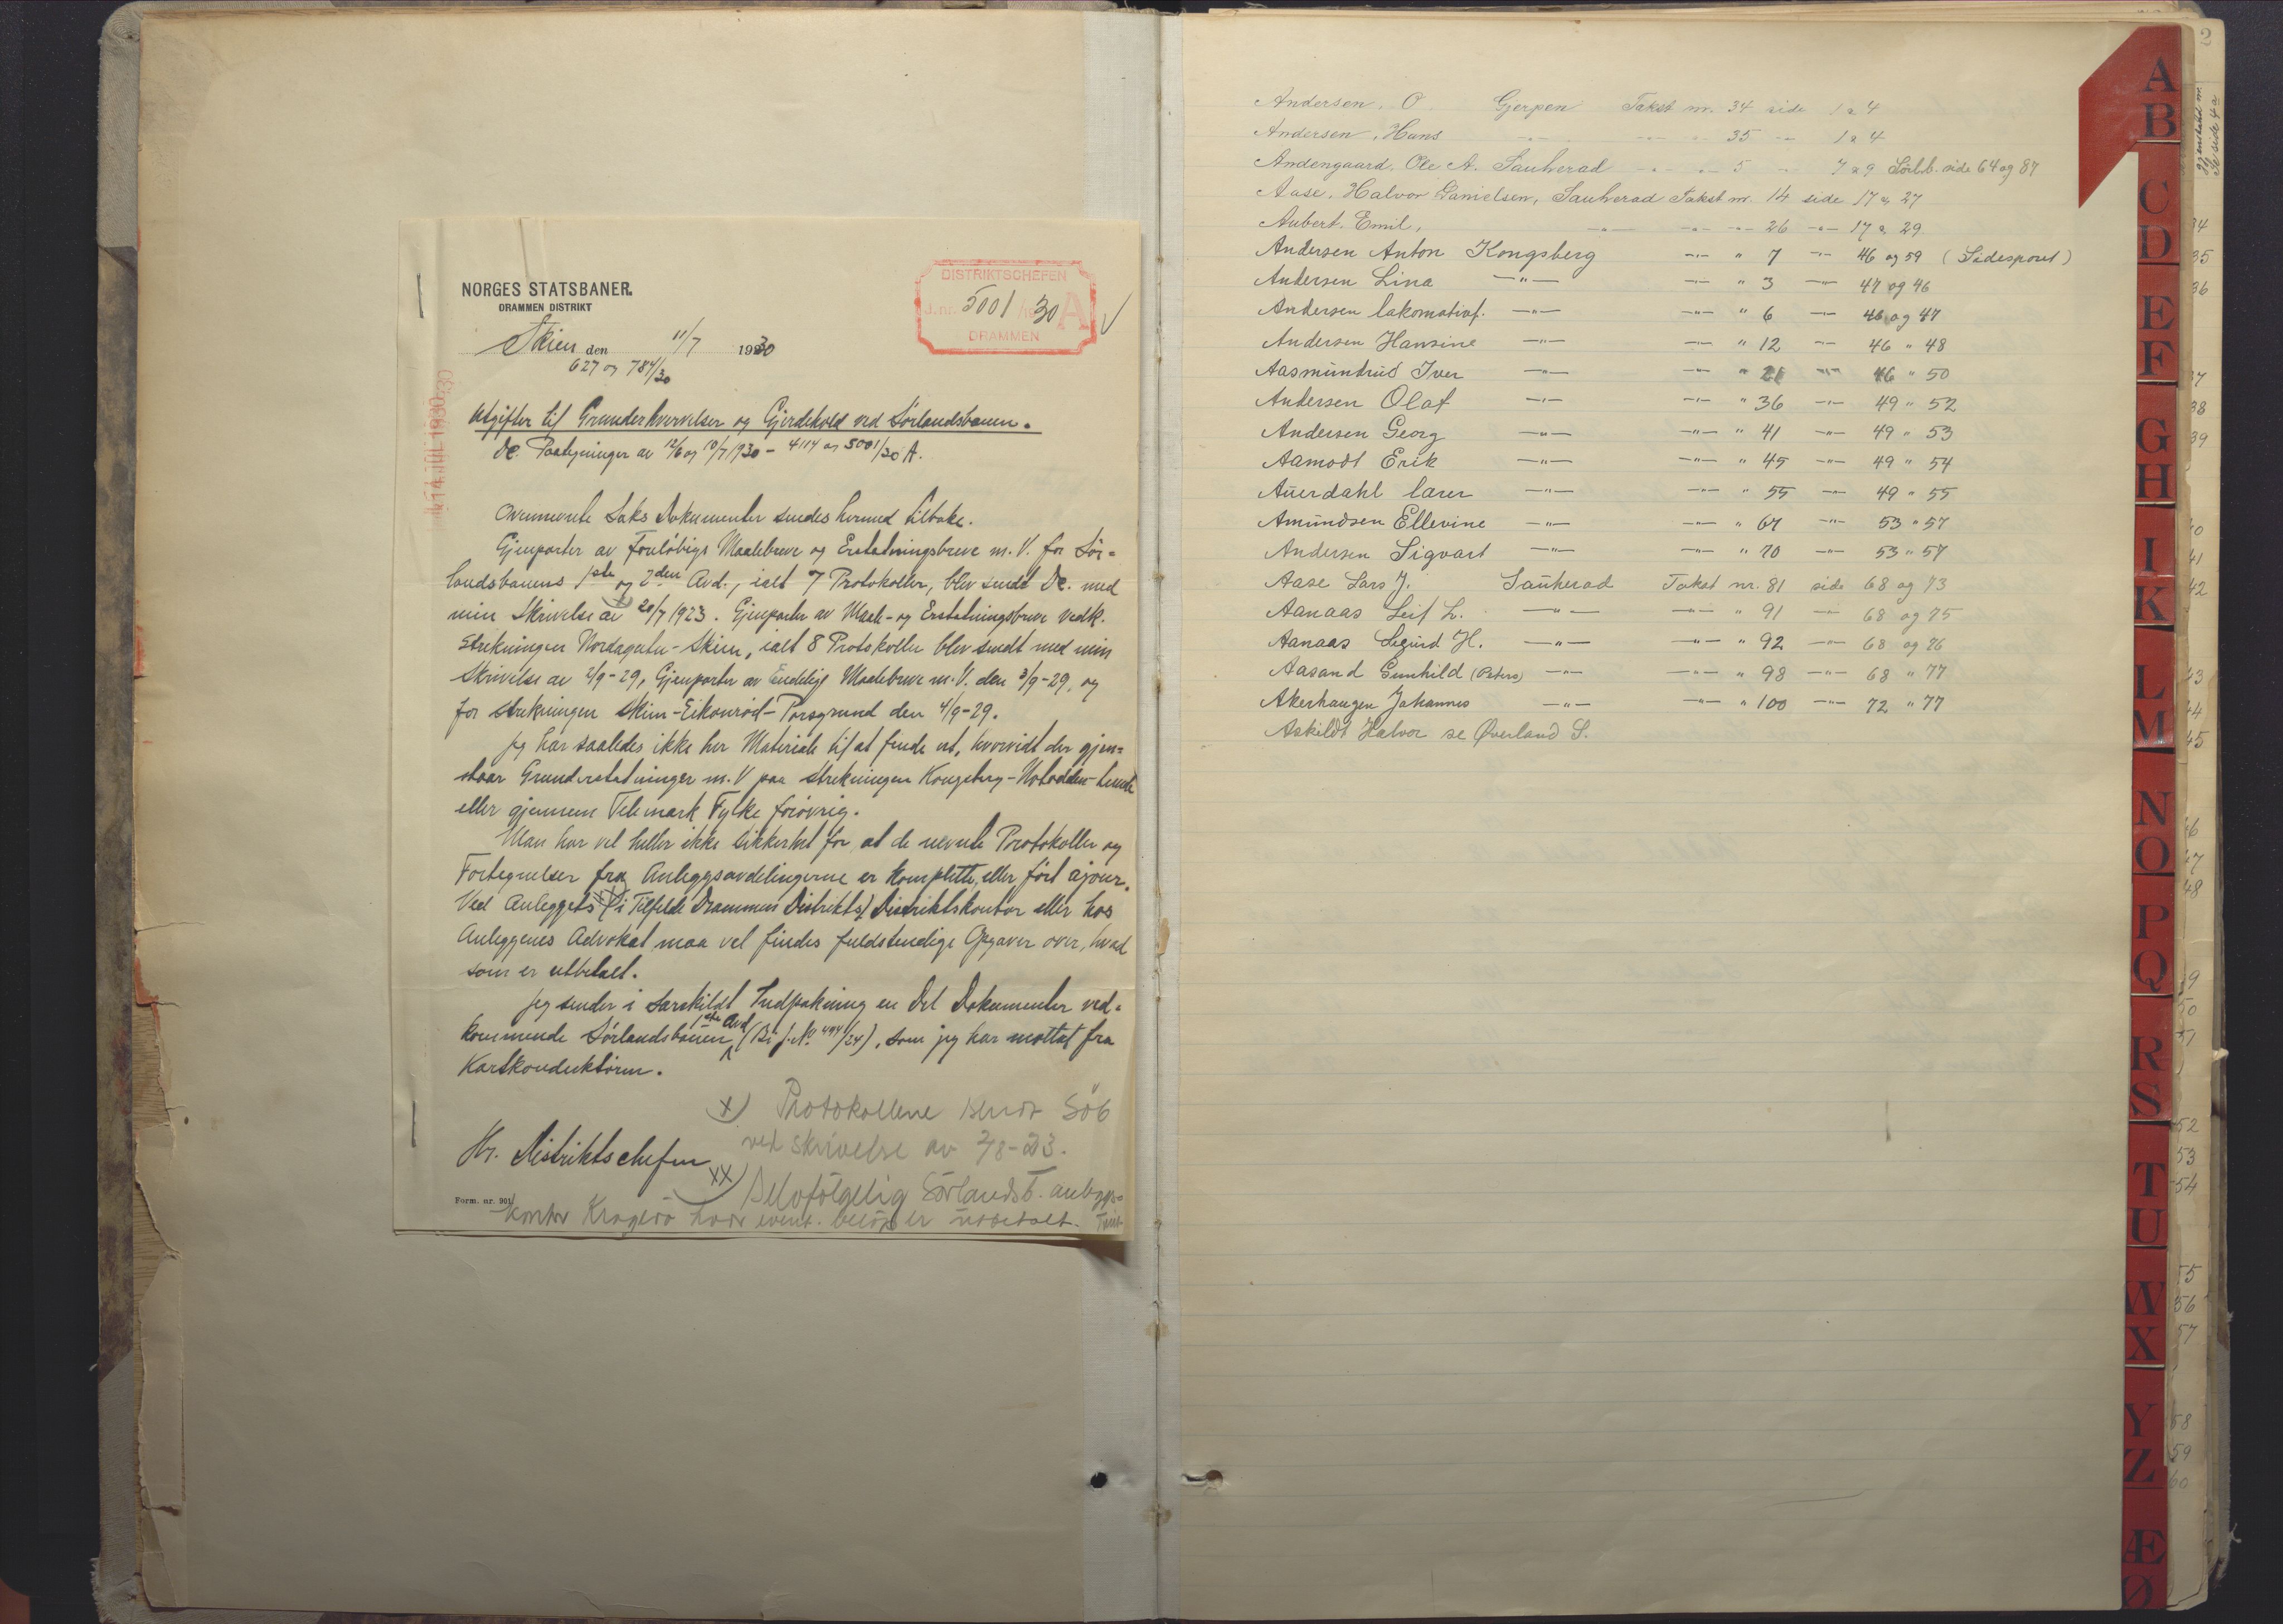 NORGES STATSBANER.
DRAMMEN DISTRIKT
DISTRIKTSCHEFEN
J.nr. 5001/1930 A
DRAMMEN
Skien den 11/7 1930
627 og 784/30
14 JUL 1930
Utgifter til Grunderhvervelser og Gjerdehold ved Sørlandsbanen.
Dc. Paategninger av 12/6 og 10/7 1930 - 4114 og 5001/30 A.
Ovennevnte Saks Dokumenter sendes hermed tilbake.
Gjenparter av Foreløbige Maalebreve og Erstatningsbreve m. V. for Sør-
landsbanens 1ste og 2den Avd., ialt 7 Protokoller, blev sendt Dc. med
min Skrivelse av 20/7 1923. Gjenparter av Maale- og Erstatningsbreve vedk.
Strekningen Nordagutu-Skien, ialt 8 Protokoller blev sendt med min
Skrivelse av 2/9-29, Gjenparter av Endelige Maalebreve m. V. den 3/9-29, og
for strekningen Skien-Eikonrød-Porsgrund den 4/9-29.
Jeg har saaledes ikke her Materiale til at finde ut, hvorvidt der gjen-
staar Grunderstatninger m. V paa strekningen Kongsberg-Notodden-Lunde
eller gjennem Telemark Fylke forøvrig.
Man har vel heller ikke sikkerhet for at de nevnte Protokoller og
Fortegnelser fra Anleggsavdelingerne er komplette, eller ført ajour.
Ved Anleggets xx) (i Tilfelde Drammens Distrikts) Distriktskontor eller hos
Anleggenes Advokat maa vel findes fuldstendige Opgaver over, hvad
som er utbetalt.
Jeg sender i særskildt Indpakning en Del Dokumenter ved-
kommende Sørlandsbanen 1ste Avd (Bi J.N. 494/24), som jeg har mottat fra
Kartkonduktøren.
x) Protokollene sendt Söb
ved skrivelse av 2/8-23.
Hr. Distriktschefen
xx) Selvfölgelig Sörlandsb. anleggs-
Form. nr. 901
kontor Kragerö hvor event. belöp er utbetalt.
Andersen, O. Gjerpen Takst nr. 34 side 1 a 4
Andersen, Hans -"- -"- " 35 -"- 1 a 4
Andengaard, Ole A. Sauherad -"- " 5 -"- 7 a 9 Sørlb. side 64 og 87
Aase, Halvor Danielsen, Sauherad Takst nr. 14 side 17 a 27
Aubert, Emil, -"- -"- -"- 26 -"- 17 a 29
Andersen Anton Kongsberg -"- " 7 -"- 46 og 59 (Sidesporet)
Andersen Lina -"- -"- " 3 -"- 47 og 46
Andersen lokomotivf. -"- -"- " 6 -"- 46 og 47
Andersen Hansine -"- -"- " 12 -"- 46 " 48
Aasmundrud Iver -"- -"- " 21 -"- 46 " 50
Andersen Olaf -"- -"- " 36 -"- 49 " 52
Andersen Georg -"- -"- " 41 -"- 49 " 53
Aamodt Erik -"- -"- " 45 -"- 49 " 54
Auerdahl lærer -"- -"- " 55 -"- 49 " 55
Amundsen Ellevine -"- -"- " 67 -"- 53 " 57
Andersen Sigvart -"- -"- " 70 -"- 53 " 57
Aase Lars J. Sauherad Takst nr. 81 side 68 og 73
Aanaas Leif L. -"- -"- " 91 -"- 68 og 75
Aanaas Sigurd H. -"- -"- " 92 -"- 68 og 76
Aasand Gunhild (Peters) -"- -"- " 98 -"- 68 " 77
Akerhaugen Johannes -"- -"- " 100 -"- 72 " 77
Askildt Halvor se Øverland S.
A
B
C
D
E
F
G
H
I
K
L
M
N
O
P
Q
R
S
T
U
W
X
Y
Z
Æ
Ø
2
34
35
36
37
38
39
40
41
42
43
44
45
46
47
48
49
50
51
52
53
54
55
56
57
58
59
60